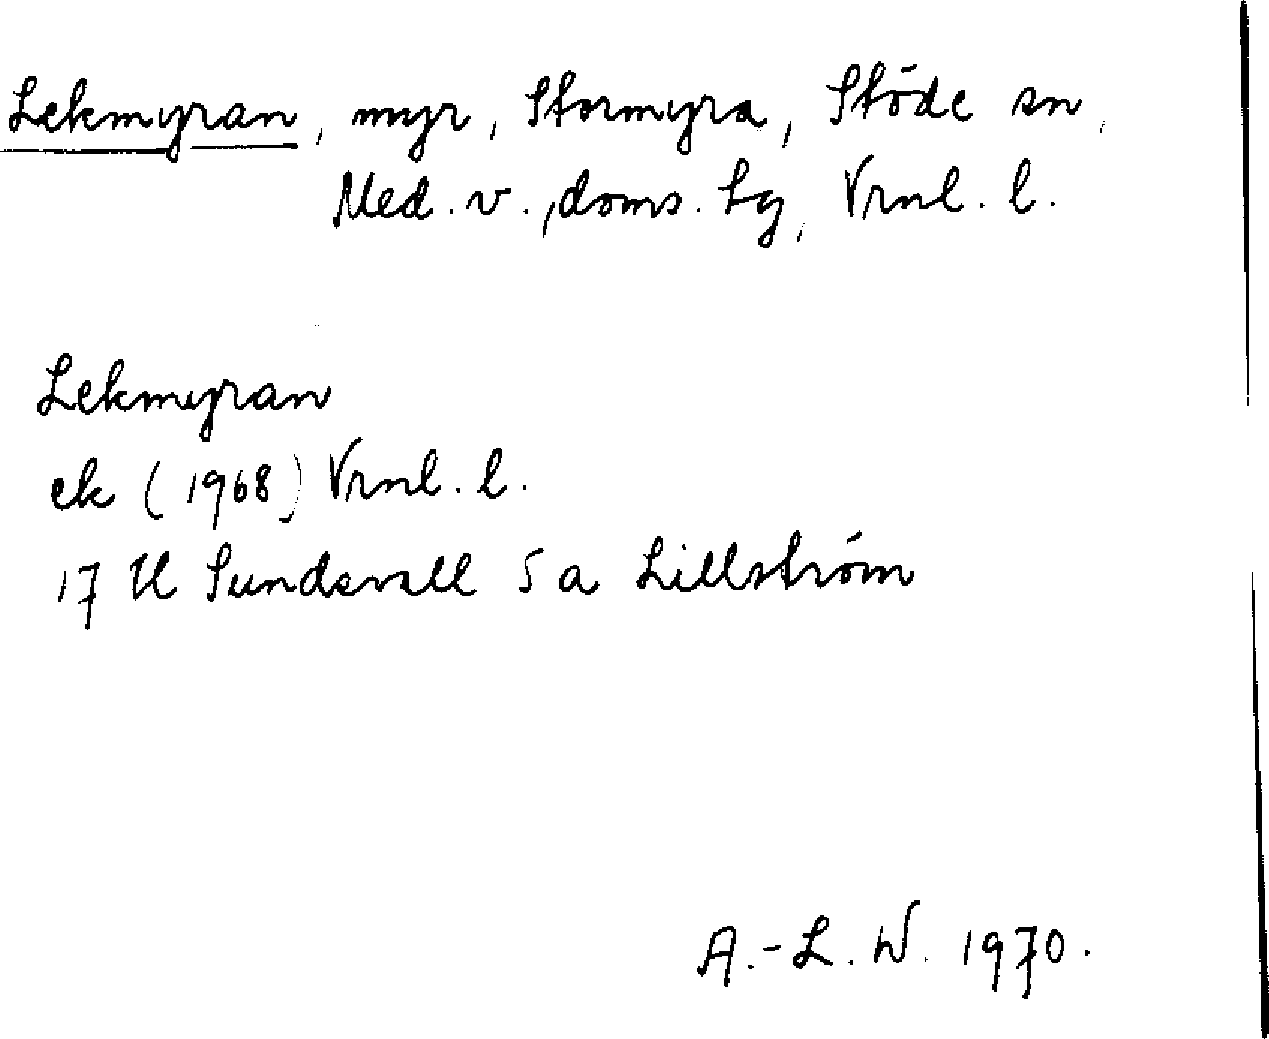 Lekmyran, myr, Stormyra, Stöde sn,
Med. v., doms. tg, Vrnl. l.
Lekmyran
ek (1968) Vrnl. l.
17 H Sundsvall 5 a Lillström
A.-L. W. 1970.